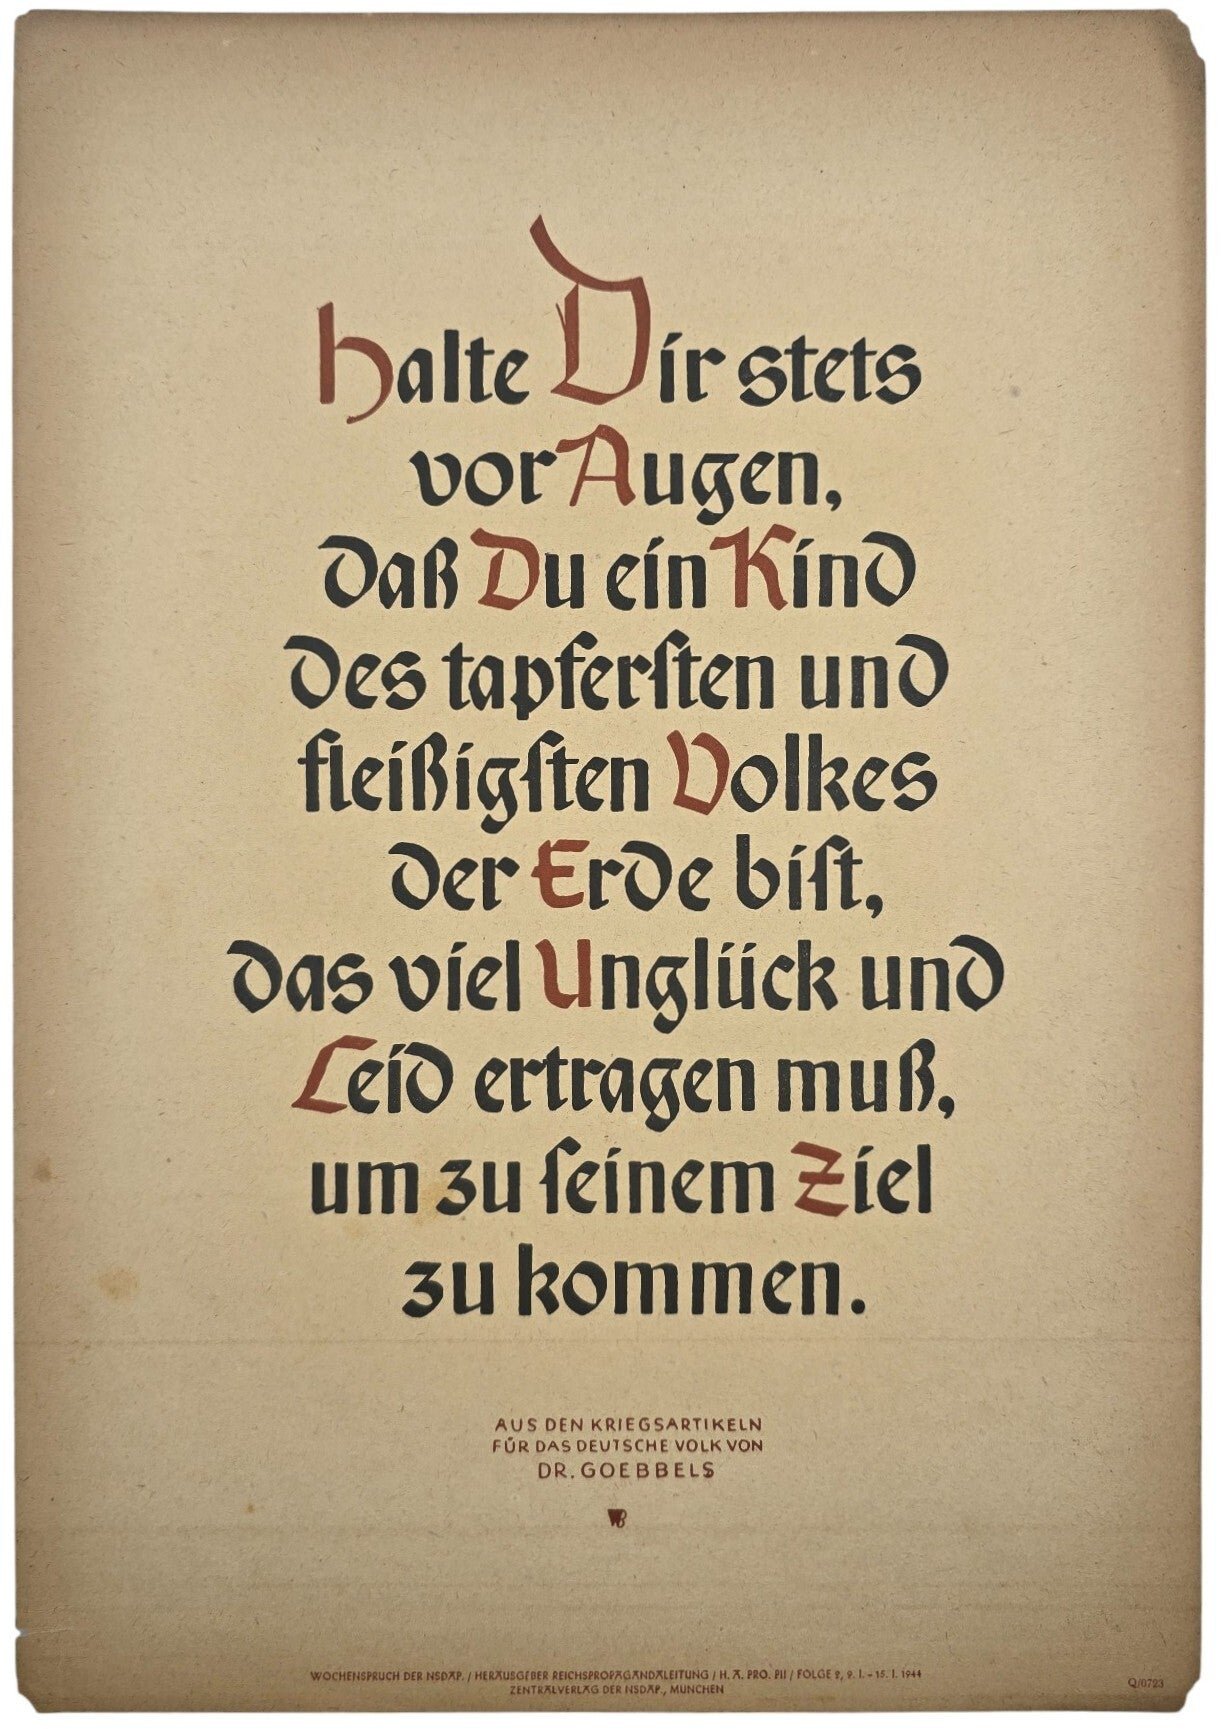 Halte Dir stets
vor Augen,
daß Du ein Kind
des tapferſten und
fleißigſten Volkes
der Erde biſt,
das viel Unglück und
Leid ertragen muß,
um zu ſeinem Ziel
zu kommen.
AUS DEN KRIEGSARTIKELN
FÜR DAS DEUTSCHE VOLK VON
DR. GOEBBELS
WB
WOCHENSPRUCH DER NSDAP. / HERAUSGEBER REICHSPROPAGANDALEITUNG / H. A. PRO. PII / FOLGE 2, 9. I. - 15. I. 1944
ZENTRALVERLAG DER NSDAP., MÜNCHEN
Q/0723